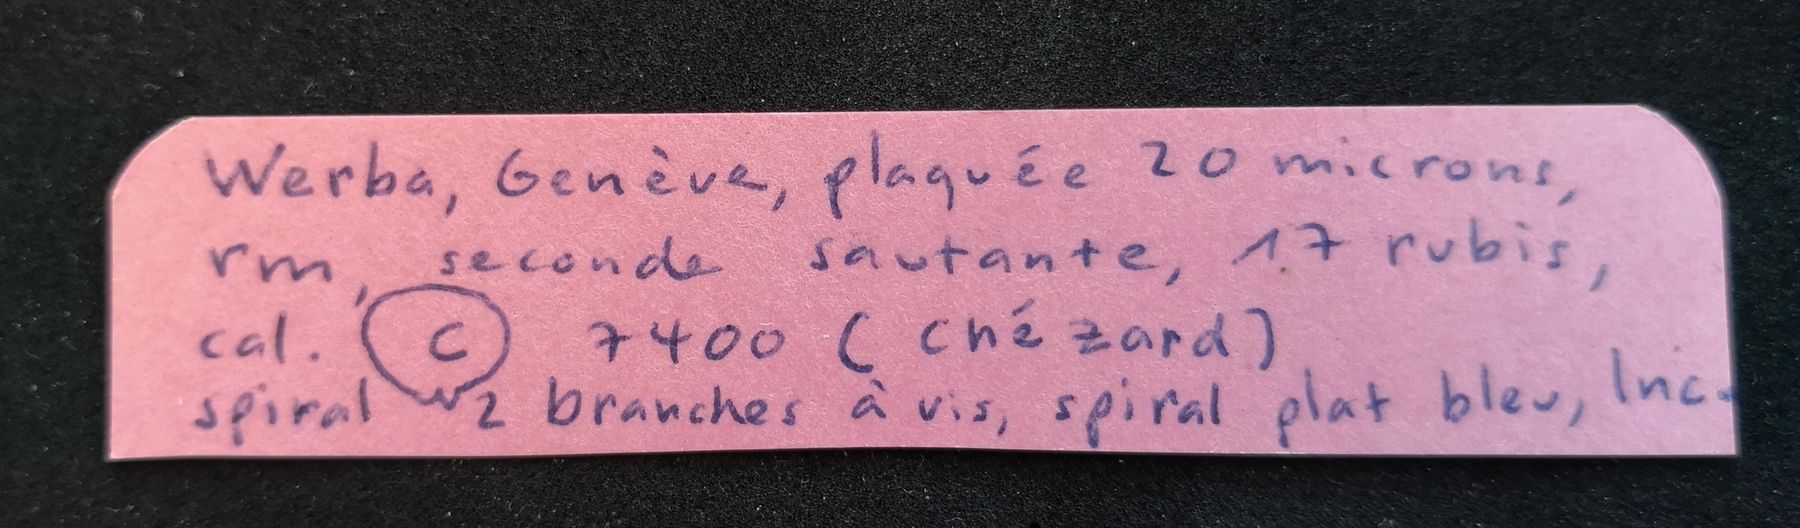 Werba, Genève, plaquée 20 microns,
rm, seconde sautante, 17 rubis,
cal. C 7400 (Chézard)
spiral 2 branches à vis, spiral plat bleu, Inc.